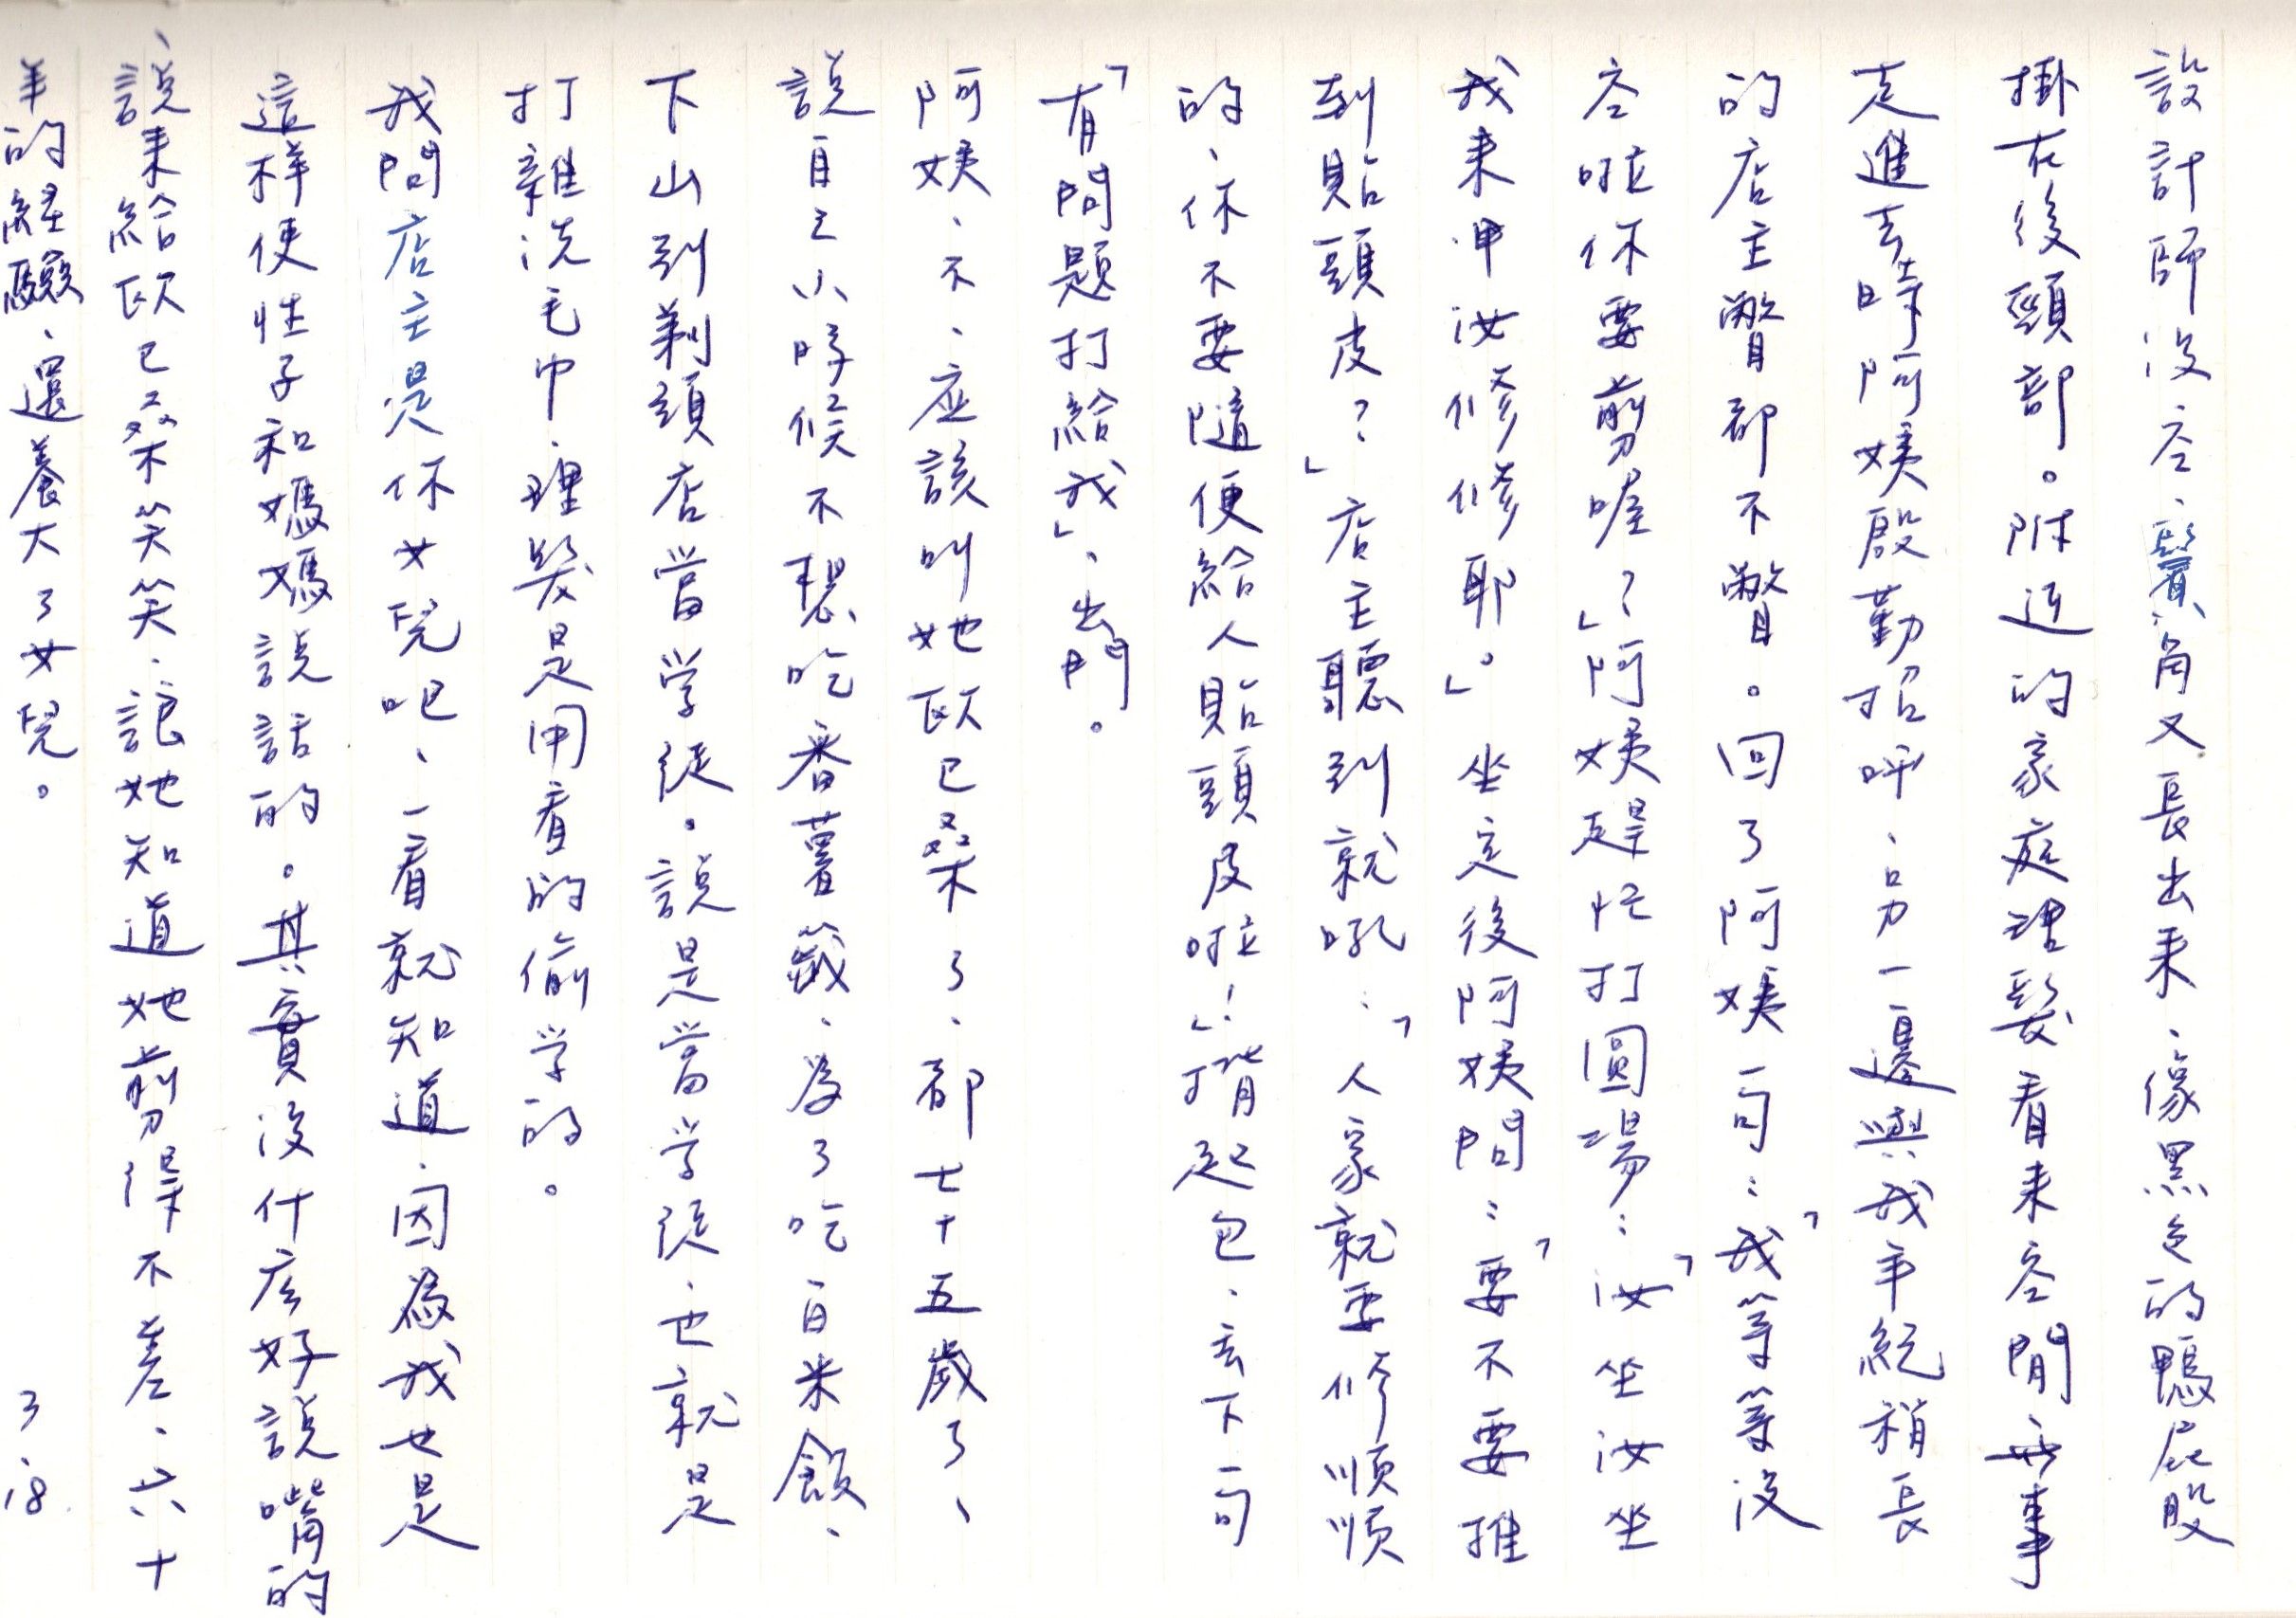 設計師没空、鬢角又長出来、像黑色的鴨屁股
掛在後頸部。附近的家庭理髮看来空閒無事
走進去時阿姨殷勤招呼、另一邊與我年紀稍長
的店主瞥都不瞥。回了阿姨一句:「我等等没
空啦你要剪喔?」?阿姨趕忙打圓場:「汝坐汝坐
我来甲汝修修耶。」坐定後阿姨問:「要不要推
到貼頭皮?」店主聽到就吼:「人家就要修順順
的、你不要隨便給人貼頭皮啦!」揹起包、丟下一句
「有問題打給我」、出門。
阿姨、不、应該叫她欧巳桑了、都七十五歲了、
說自己小時候不想吃番薯籤、為了吃白米飯、
下山到剃頭店當学徒。說是當学徒、也就是
打雜洗毛巾、理髮是用看的偷学的。
我問店主是你女兒吧、一看就知道、因為我也是
這样使性子和媽媽說話的。其實没什広好說嘴的
、說来給欧巳桑笑笑、讓她知道她剪得不差、六十
年的經驗、還養大了女兒。
3.18.